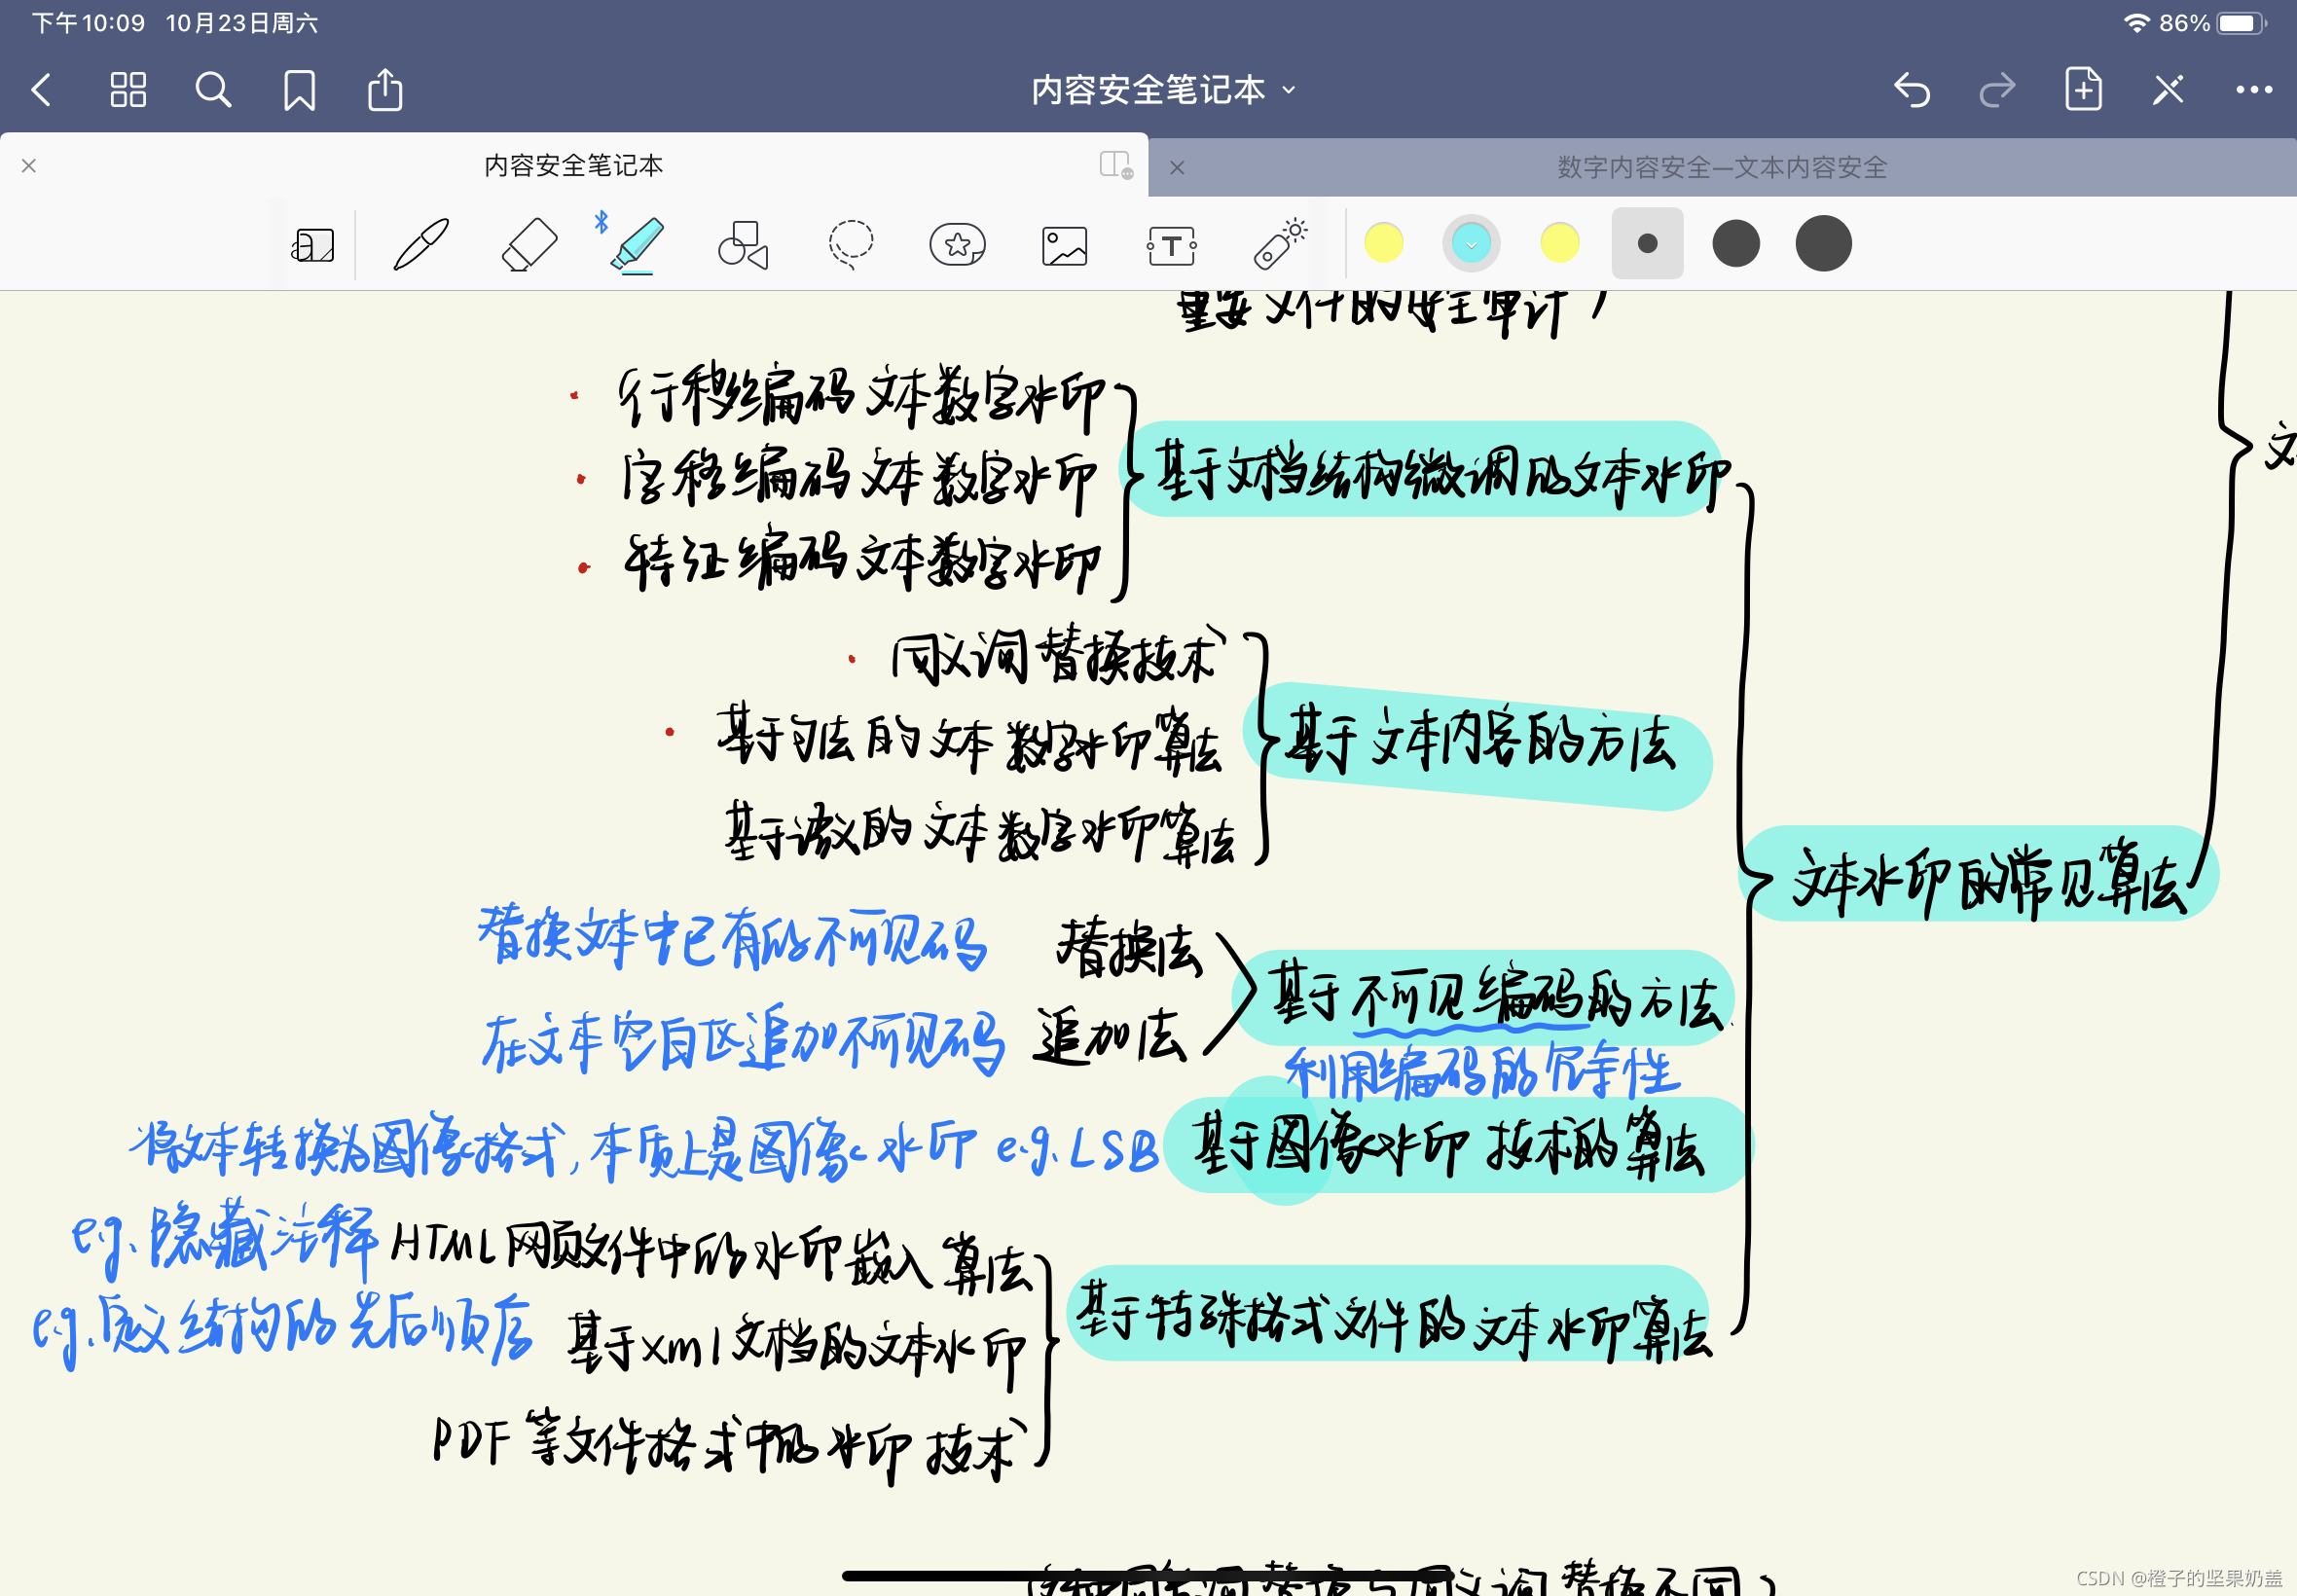 下午10:09 10月23日周六
86%
内容安全笔记本
内容安全笔记本
数字内容安全—文本内容安全
重要文件的安全审计)
行移编码文本数字水印
字移编码文本数字水印
特征编码文本数字水印
基于文档结构微调的文本水印
同义词替换技术
基于句法的文本数字水印算法
基于语义的文本数字水印算法
基于文本内容的方法
文本水印的常见算法
替换文本中已有的不可见码 替换法
在文本空白区追加不可见码 追加法
基于不可见编码的方法
利用编码的冗余性
将文本转换为图像格式,本质上是图像水印 e.g.LSB 基于图像水印技术的算法
e.g.隐藏注释 HTML网页文件中的水印嵌入算法
e.g.定义结构的先后顺序 基于xml文档的文本水印
PDF等文件格式中的水印技术
基于特殊格式文件的文本水印算法
CSDN @橙子的坚果奶盖